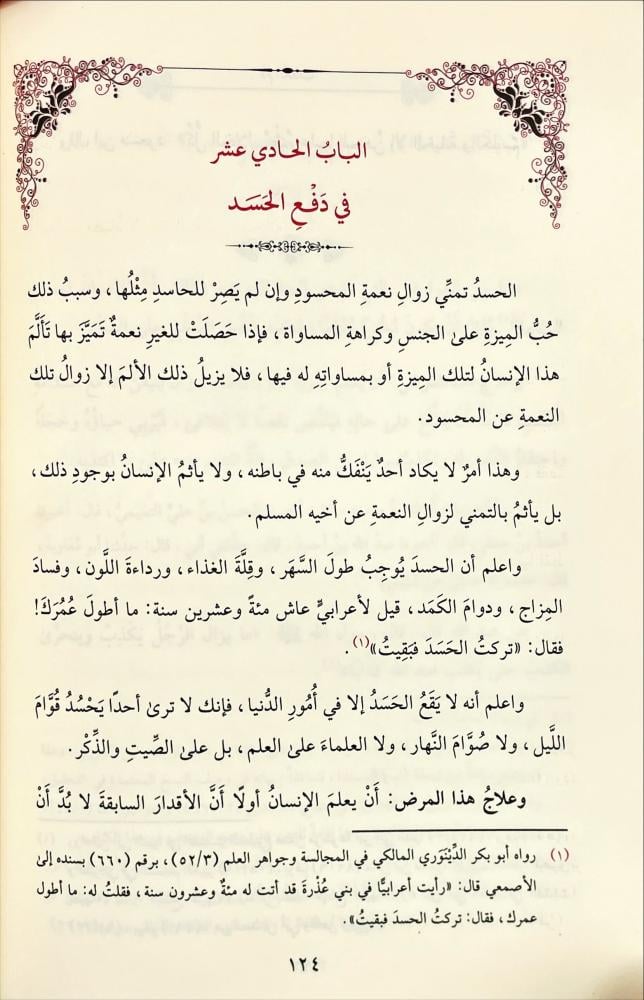 البابُ الحادي عشر
في دَفْعِ الحَسَد
الحسدُ تمنِّي زوالِ نعمةِ المحسودِ وإن لم يَصِرْ للحاسدِ مِثْلُها، وسببُ ذلك
حُبُّ المِيزةِ على الجنسِ وكراهةِ المساواة، فإذا حَصَلَتْ للغيرِ نعمةٌ تَمَيَّزَ بها تَأَلَّمَ
هذا الإنسانُ لتلك المِيزةِ أو بمساواتِهِ له فيها، فلا يزيلُ ذلك الألمَ إلا زوالُ تلك
النعمةِ عن المحسود.
وهذا أمرٌ لا يكاد أحدٌ يَنْفَكُّ منه في باطنه، ولا يأثمُ الإنسانُ بوجودِ ذلك،
بل يأثمُ بالتمني لزوالِ النعمةِ عن أخيه المسلم.
واعلم أن الحسدَ يُوجِبُ طولَ السَّهَر، وقِلَّةَ الغذاء، ورداءةَ اللَّون، وفسادَ
المِزاج، ودوامَ الكَمَد، قيل لأعرابيٍّ عاش مئةً وعشرين سنة: ما أطولَ عُمُرَكَ!
فقال: «تركتُ الحَسَدَ فبَقِيتُ»(١).
واعلم أنه لا يَقَعُ الحَسَدُ إلا في أُمُورِ الدُّنيا، فإنك لا ترى أحدًا يَحْسُدُ قُوَّامَ
اللَّيل، ولا صُوَّامَ النَّهار، ولا العلماءَ على العلم، بل على الصِّيتِ والذِّكْر.
وعلاجُ هذا المرض: أَنْ يعلمَ الإنسانُ أولًا أَنَّ الأقدارَ السابقةَ لا بُدَّ أَنْ
(١) رواه أبو بكر الدِّيْنَوَري المالكي في المجالسة وجواهر العلم (٥٢/٣)، برقم (٦٦٠) بسنده إلى
الأصمعي قال: «رأيت أعرابيًّا في بني عُذْرةَ قد أتت له مئةٌ وعشرون سنة، فقلتُ له: ما أطول
عمرك، فقال: تركتُ الحسدَ فبقيتُ».
١٢٤